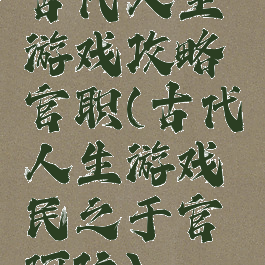 古代人生
游戏攻略
官职(古代
人生游戏
民之于官